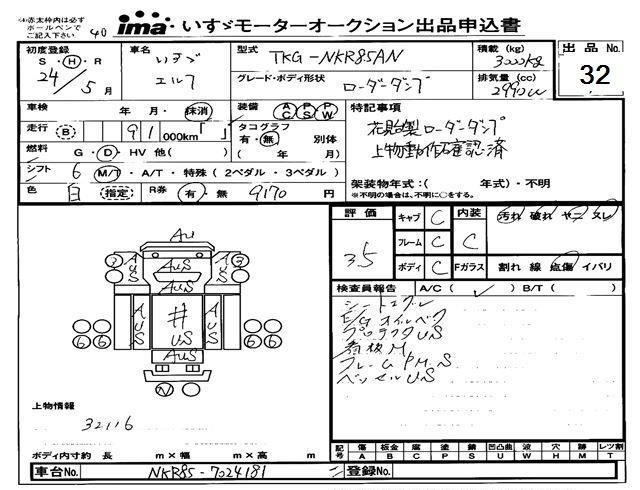 赤太枠内は必ず
ボールペンで
ご記入下さい
40
ima いすゞモーターオークション出品申込書
初度登録
S・H・R
24年 5月
車名
いすゞ
エルフ
型式 TKG-NKR85AN
グレード・ボディ形状
ローダーダンプ
積載 (kg)
3000kg
排気量 (cc)
2990cc
出品 No.
32
車検 年 月・抹消
装備 AC PS PW
走行 (B) 91000km「 」
タコグラフ
有・無 別体
( 年 月)
燃料 G・D・HV 他( )
シフト 6 M/T・A/T・特殊(2ペダル・3ペダル)
色 白 (指定)
R券 有・無 9170円
特記事項
花見台製ローダーダンプ
上物動作確認済
架装物年式:( 年式)・不明
※不明の場合は、不明に○をする。
評価 3.5
キャブ C
フレーム C
ボディ C
内装 C
汚れ 破れ ヤニ スレ
Fガラス 割れ 線 点傷 イバリ
検査員報告 A/C( ✓ ) B/T( )
シートコゲ
E/Gオイル
US
看板M
フレームPM.S
ベッセルUS
AU
AUS
AUS
AUS
AUS
AUS
#
AUS
3
6 6
6 6
上物情報
32116
ボディ内寸約 長 m×幅 m×高 m
記号 傷A 板金B 腐C 塗P 錆S 凹凸曲U 波W 穴H 跡M レツ割T
車台No. NKR85-7024181
登録No.